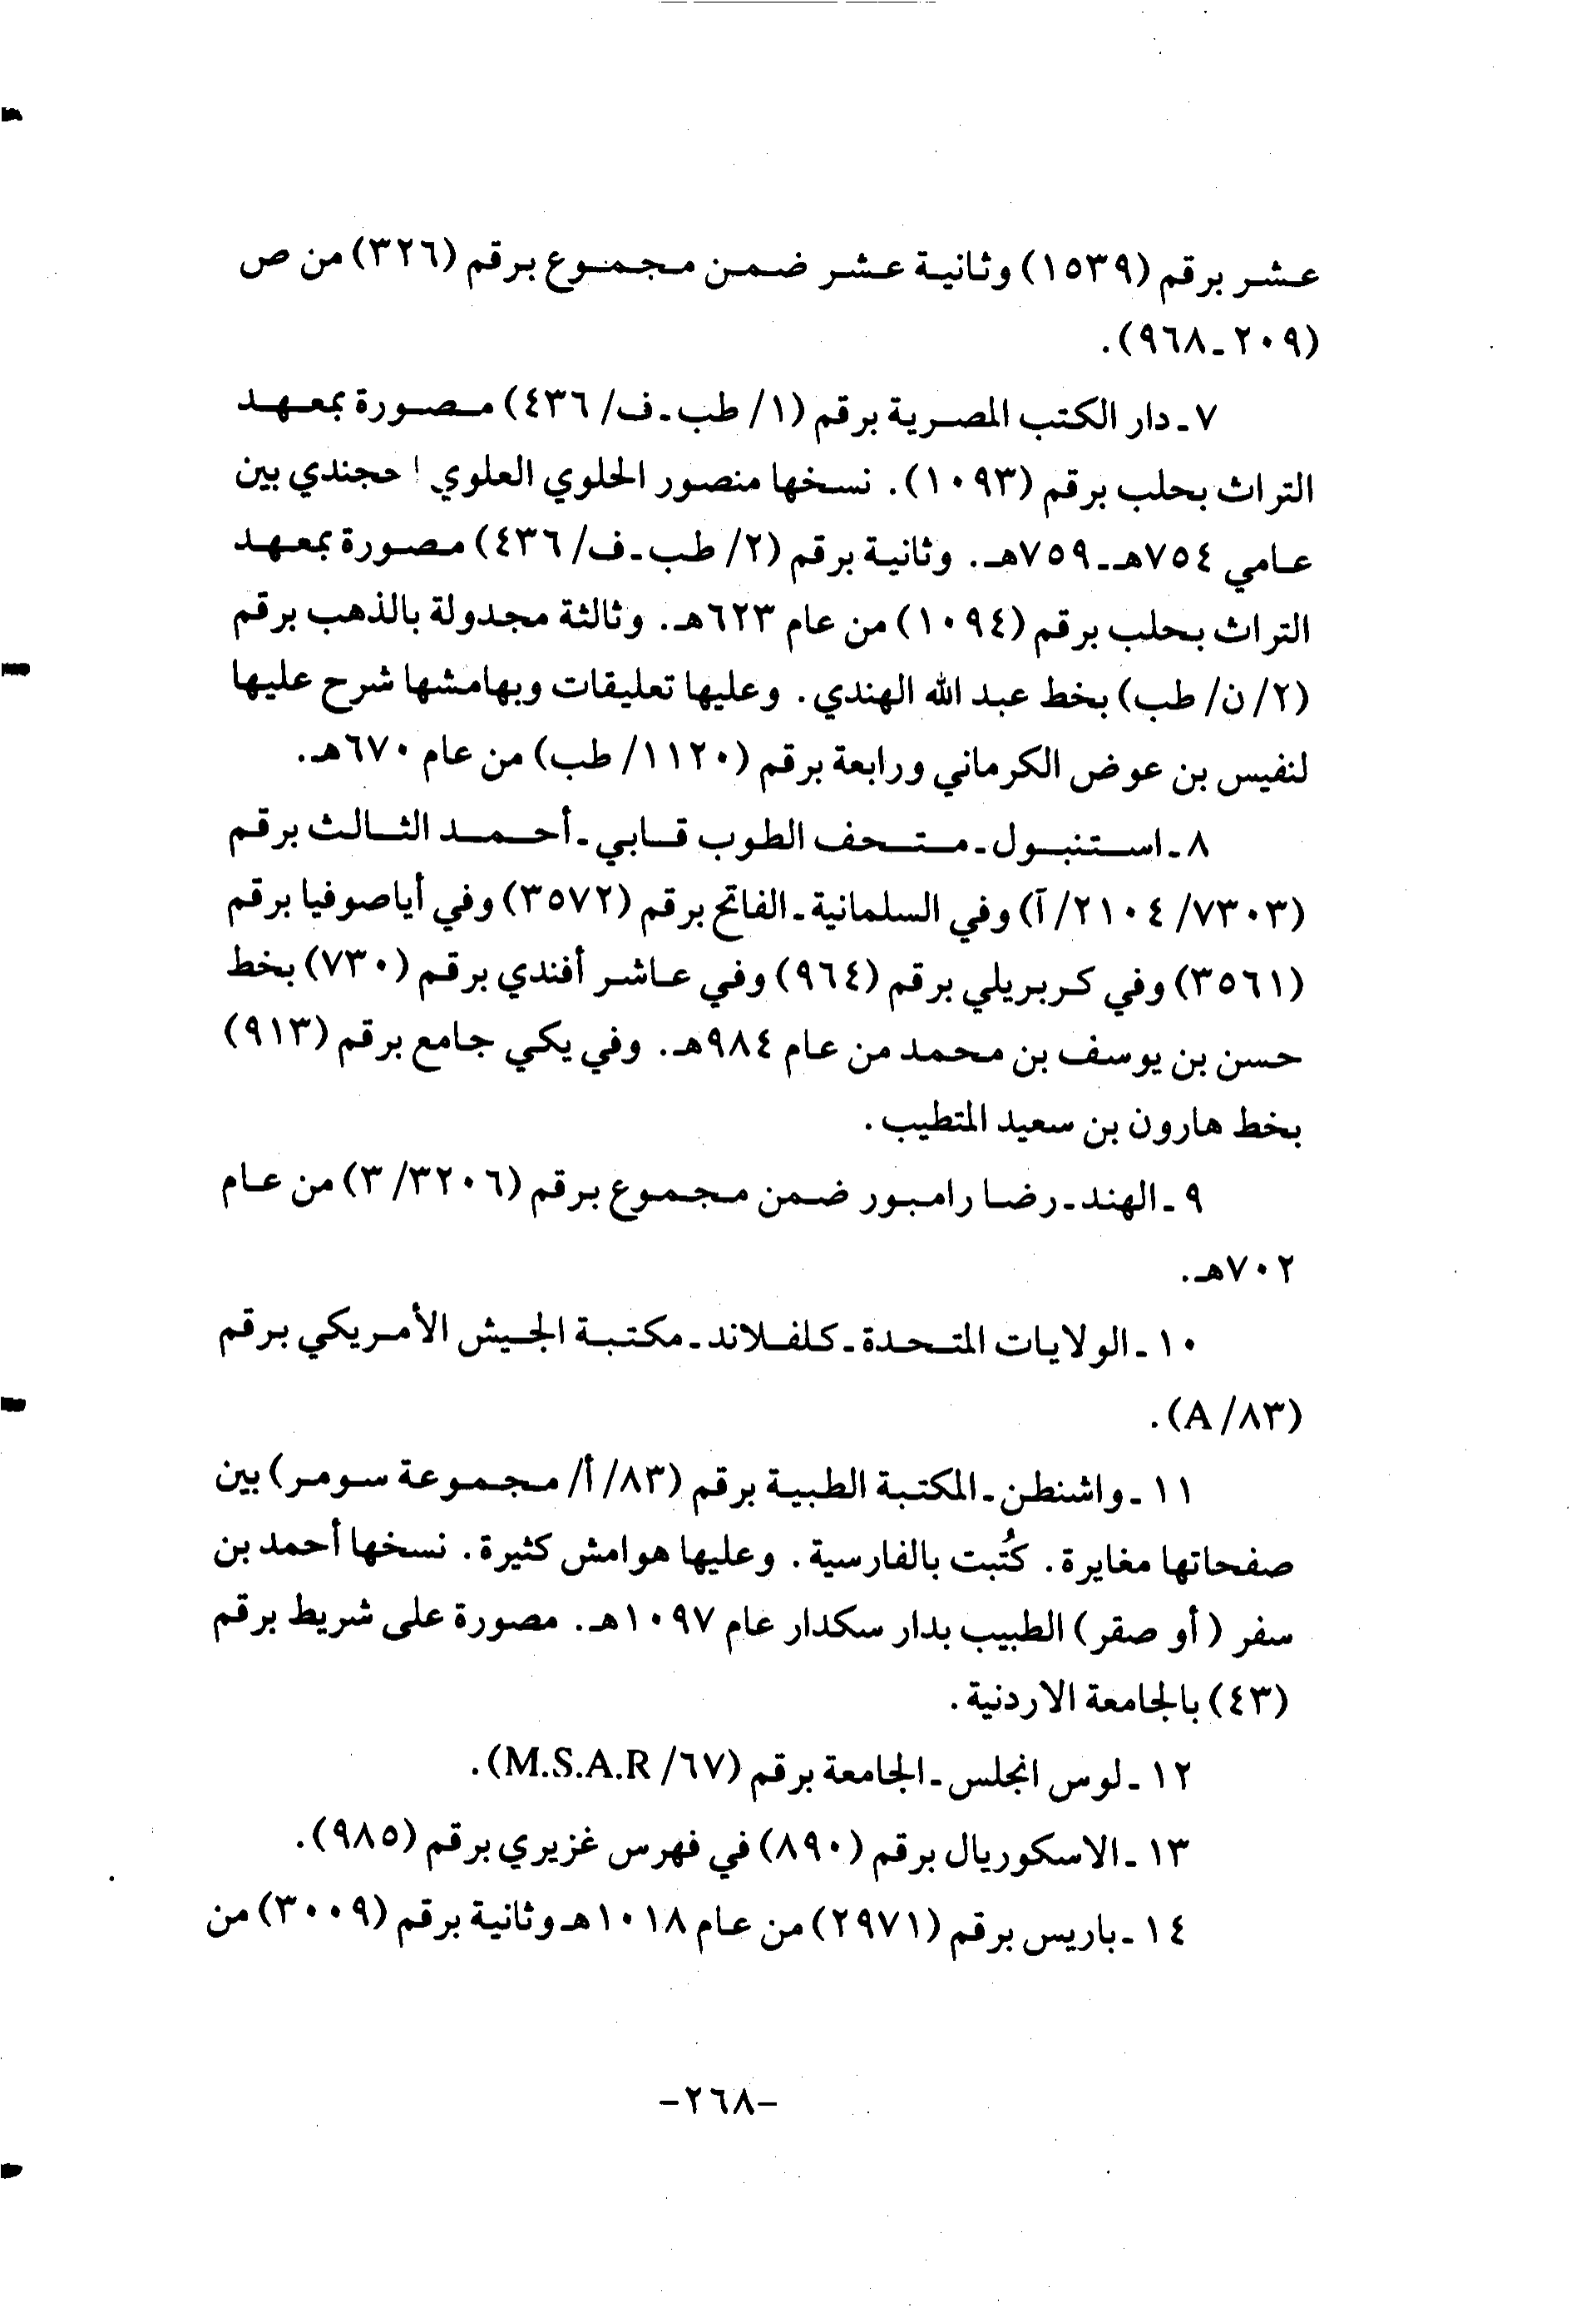 عشر برقم (١٥٣٩) وثانية عشر ضمن مجموع برقم (٣٢٦) من ص
(٢٠٩ـ٩٦٨).
٧ـ دار الكتب المصرية برقم (١/ طب ـ ف/ ٤٣٦) مصورة بمعهد
التراث بحلب برقم (١٠٩٣). نسخها منصور الحلوي العلوي احجندي بين
عامي ٧٥٤هـ ـ ٧٥٩هـ. وثانية برقم (٢/ طب ـ ف/ ٤٣٦) مصورة بمعهد
التراث بحلب برقم (١٠٩٤) من عام ٦٢٣هـ. وثالثة مجدولة بالذهب برقم
(٢/ ن/ طب) بخط عبد الله الهندي. وعليها تعليقات وبهامشها شرح عليها
لنفيس بن عوض الكرماني ورابعة برقم (١١٢٠/ طب) من عام ٦٧٠هـ.
٨ـ استنبول ـ متحف الطوب قابي ـ أحمد الثالث برقم
(٧٣٠٣/ ٢١٠٤/ آ) وفي السلمانية ـ الفاتح برقم (٣٥٧٢) وفي أياصوفيا برقم
(٣٥٦١) وفي كربريلي برقم (٩٦٤) وفي عاشر أفندي برقم (٧٣٠) بخط
حسن بن يوسف بن محمد من عام ٩٨٤هـ. وفي يكي جامع برقم (٩١٣)
بخط هارون بن سعيد المتطيب.
٩ـ الهند ـ رضا رامبور ضمن مجموع برقم (٣٢٠٦/ ٣) من عام
٧٠٢هـ.
١٠ـ الولايات المتحدة ـ كلفلاند ـ مكتبة الجيش الأمريكي برقم
(٨٣/ A).
١١ـ واشنطن ـ المكتبة الطبية برقم (٨٣/ أ/ مجموعة سومر) بين
صفحاتها مغايرة. كُتبت بالفارسية. وعليها هوامش كثيرة. نسخها أحمد بن
سفر (أو صقر) الطبيب بدار سكدار عام ١٠٩٧هـ. مصورة على شريط برقم
(٤٣) بالجامعة الاردنية.
١٢ـ لوس انجلس ـ الجامعة برقم (٦٧/ M.S.A.R).
١٣ـ الاسكوريال برقم (٨٩٠) في فهرس غزيري برقم (٩٨٥).
١٤ـ باريس برقم (٢٩٧١) من عام ١٠١٨هـ وثانية برقم (٣٠٠٩) من
-٢٦٨-